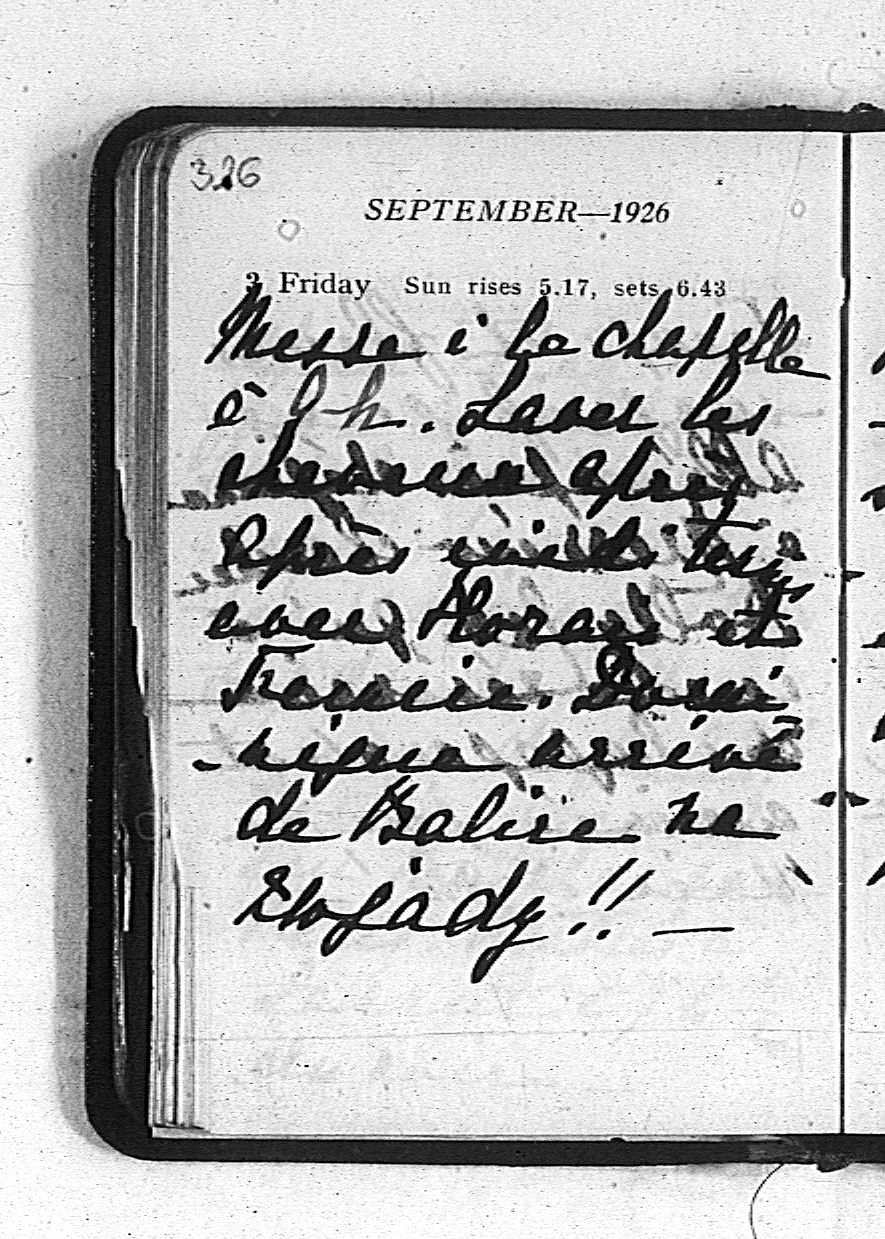 326
SEPTEMBER—1926
3 Friday Sun rises 5.17, sets 6.43
Messe à la chapelle
à 9 h. Laver les
cheveux après
Après midi
avec Horace et
Francis. Domi
-nique arrivé
de Balice na
Zwady !! —